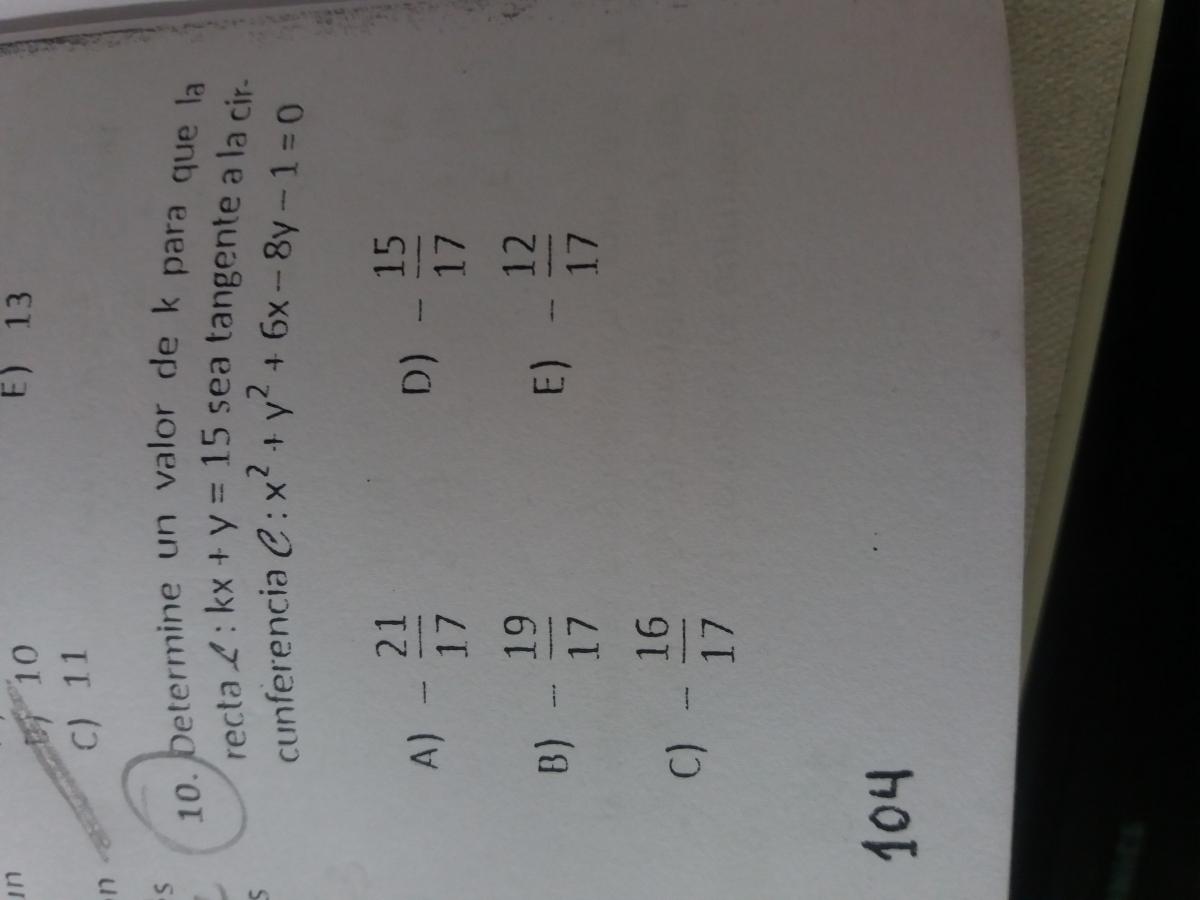 E) 13
10
C) 11
10. Determine un valor de k para que la
recta ℒ : kx + y = 15 sea tangente a la cir-
cunferencia 𝒞 : x² + y² + 6x − 8y − 1 = 0
A) − 21/17
D) − 15/17
B) − 19/17
E) − 12/17
C) − 16/17
104